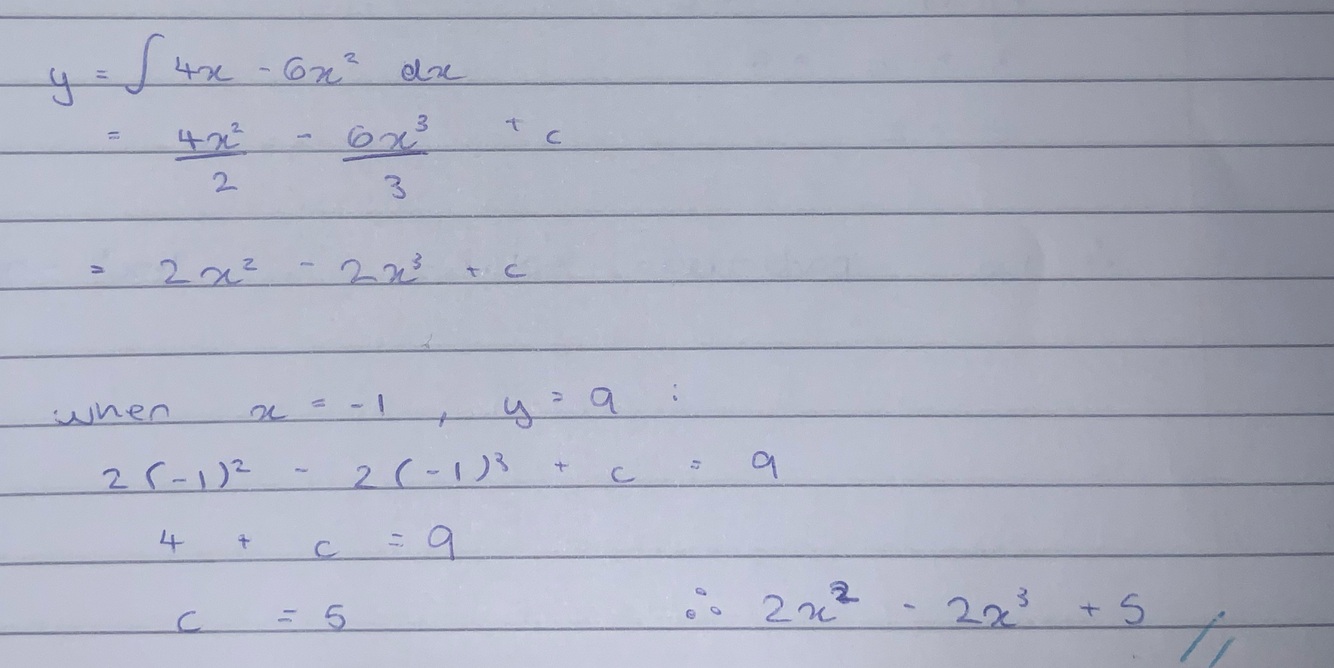 y = ∫ 4x - 6x² dx
= 4x²/2 - 6x³/3 + c
= 2x² - 2x³ + c
when x = -1, y = 9 :
2(-1)² - 2(-1)³ + c = 9
4 + c = 9
c = 5 ∴ 2x² - 2x³ + 5 //